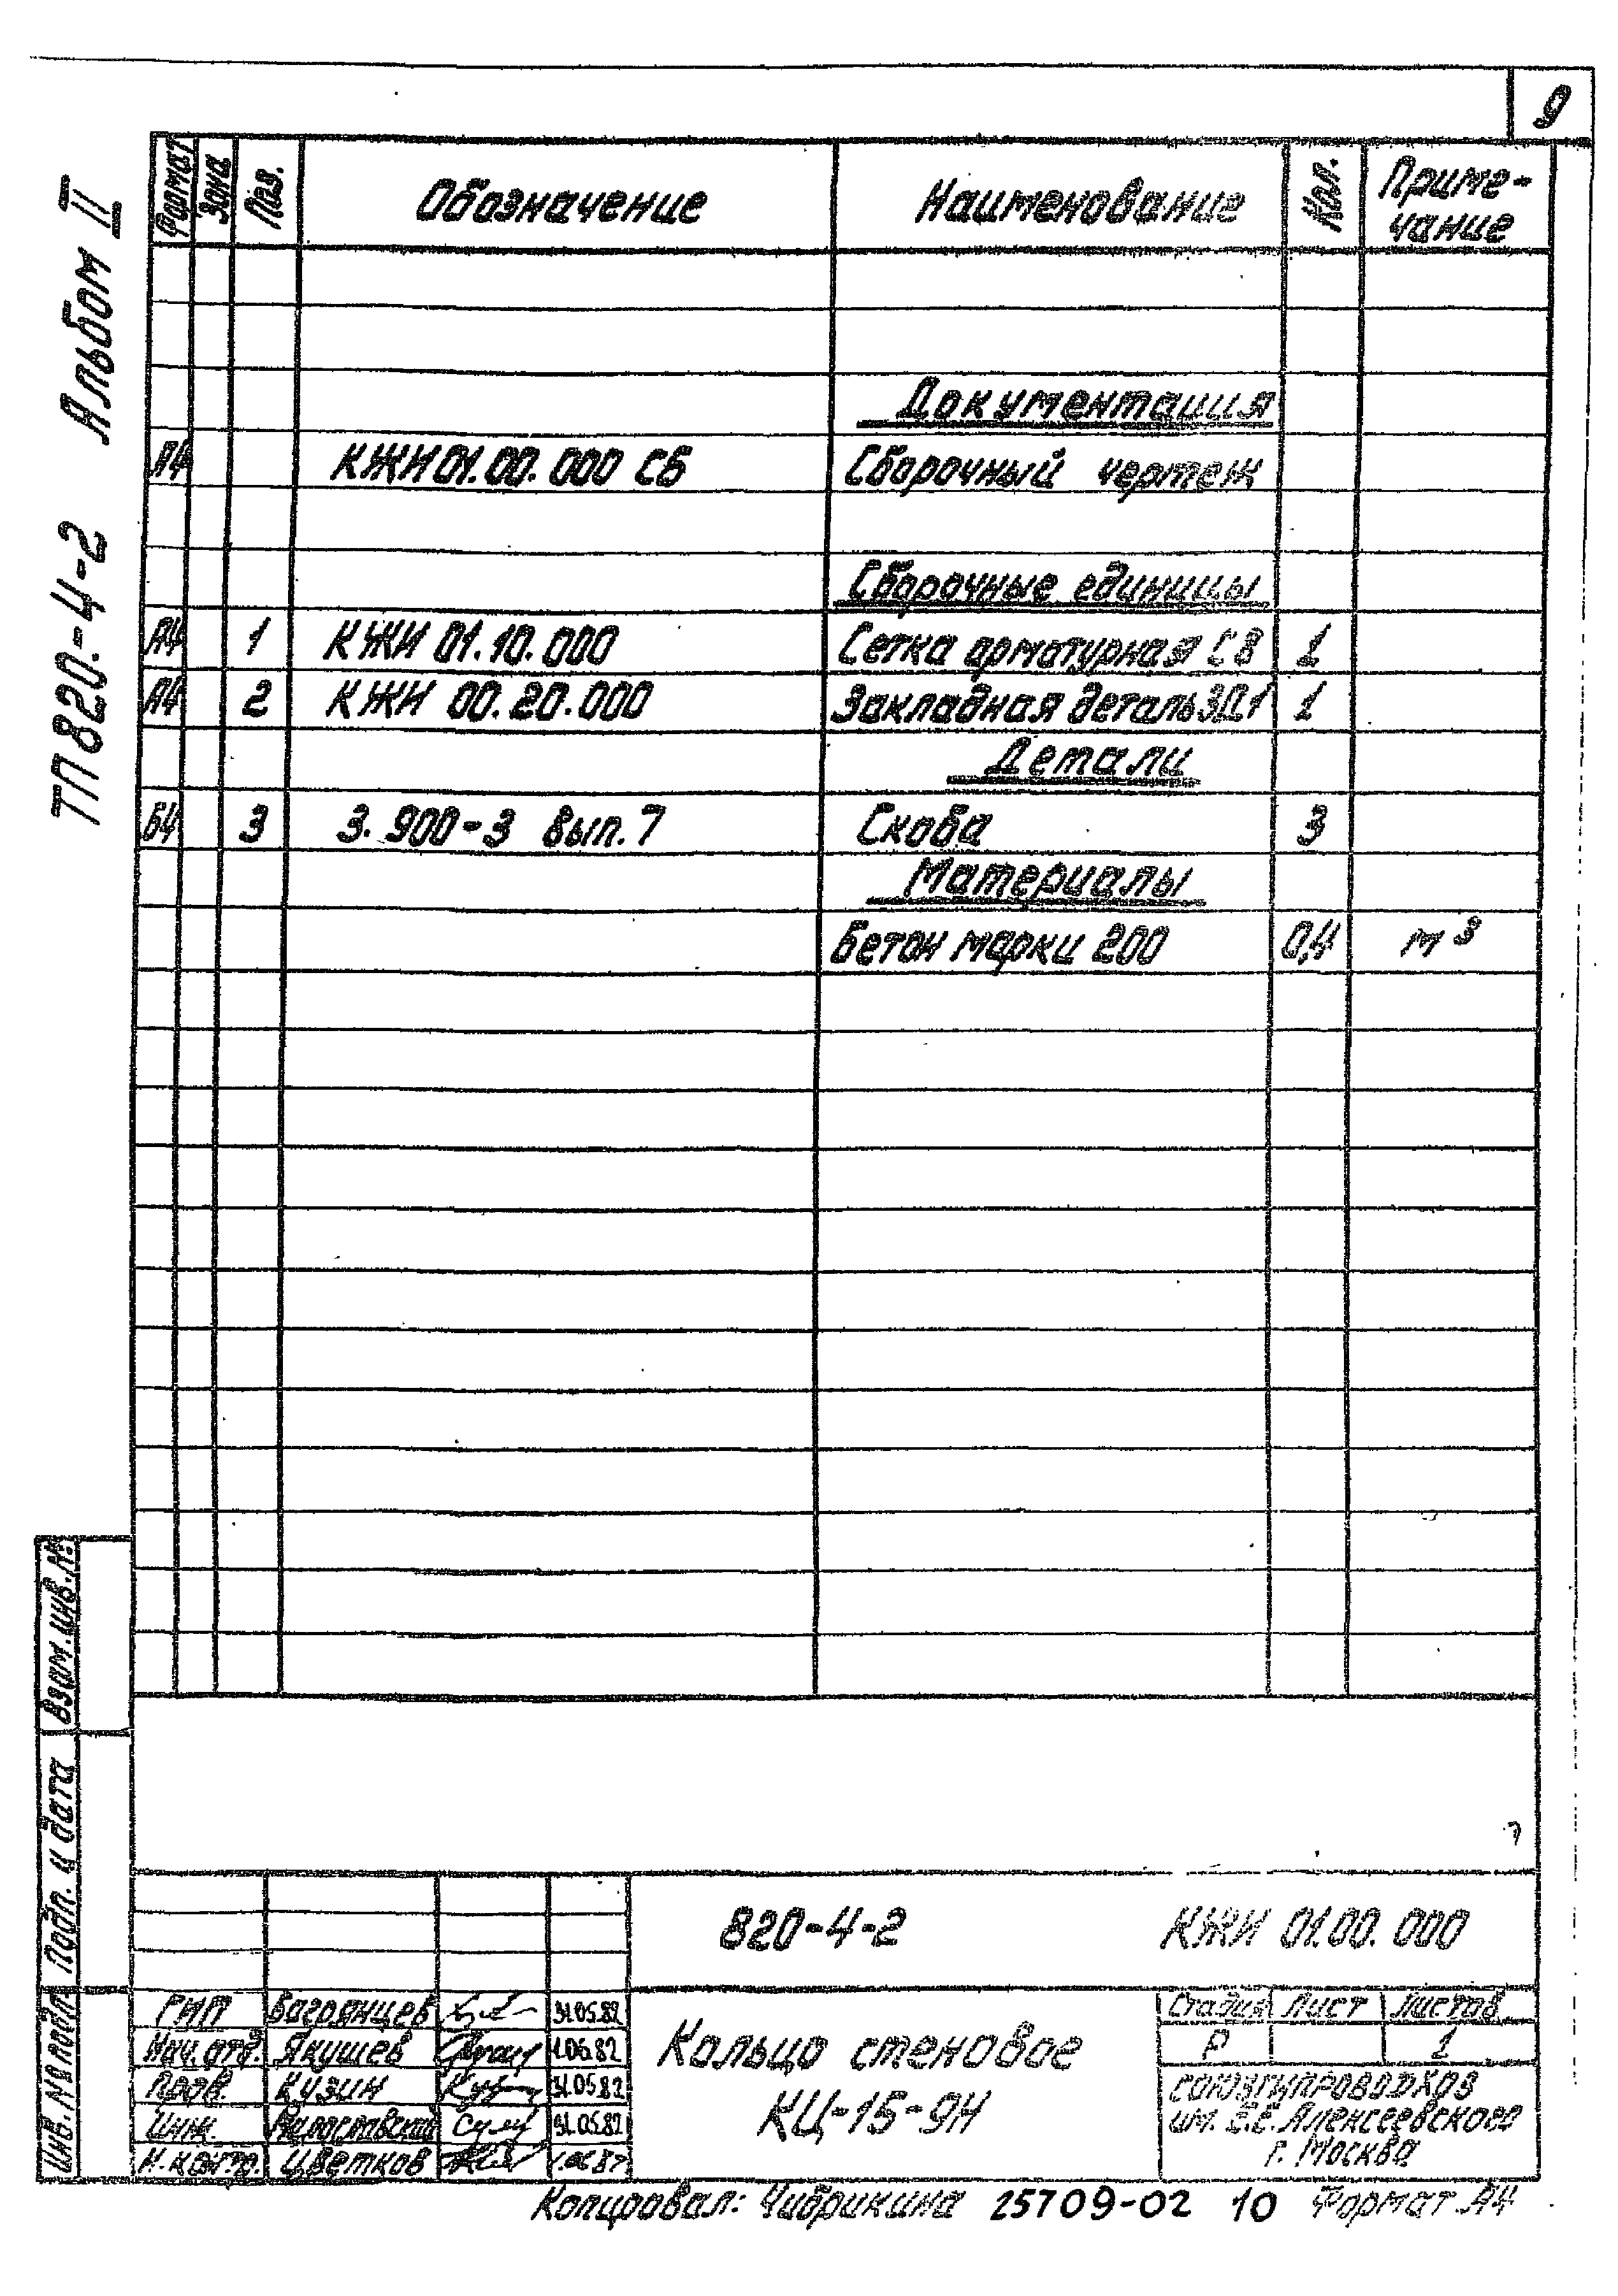 9
ТП 820-4-2 Альбом II
Формат Зона Поз. Обозначение Наименование Кол. Приме-
чание
Документация
А4 КЖИ 01.00.000 СБ Сборочный чертеж
Сборочные единицы
А4 1 КЖИ 01.10.000 Сетка арматурная С8 1
А4 2 КЖИ 00.20.000 Закладная деталь ЗД1 1
Детали
Б4 3 3.900-3 вып. 7 Скоба 3
Материалы
Бетон марки 200 0,4 м³
Взам. инв. №
Подп. и дата
Инв. № подл.
820-4-2 КЖИ 01.00.000
ГИП Багрянцев 31.05.82
Нач. отд. Якушев 1.06.82
Пров. Кузин 31.05.82
Инж. 31.05.82
Н. контр. Цветков
Кольцо стеновое
КЦ-15-9Н
Стадия Лист Листов
Р 1
СОЮЗГИПРОВОДХОЗ
им. Е.Е. Алексеевского
г. Москва
Копировал: Чибрикина 25709-02 10 Формат А4